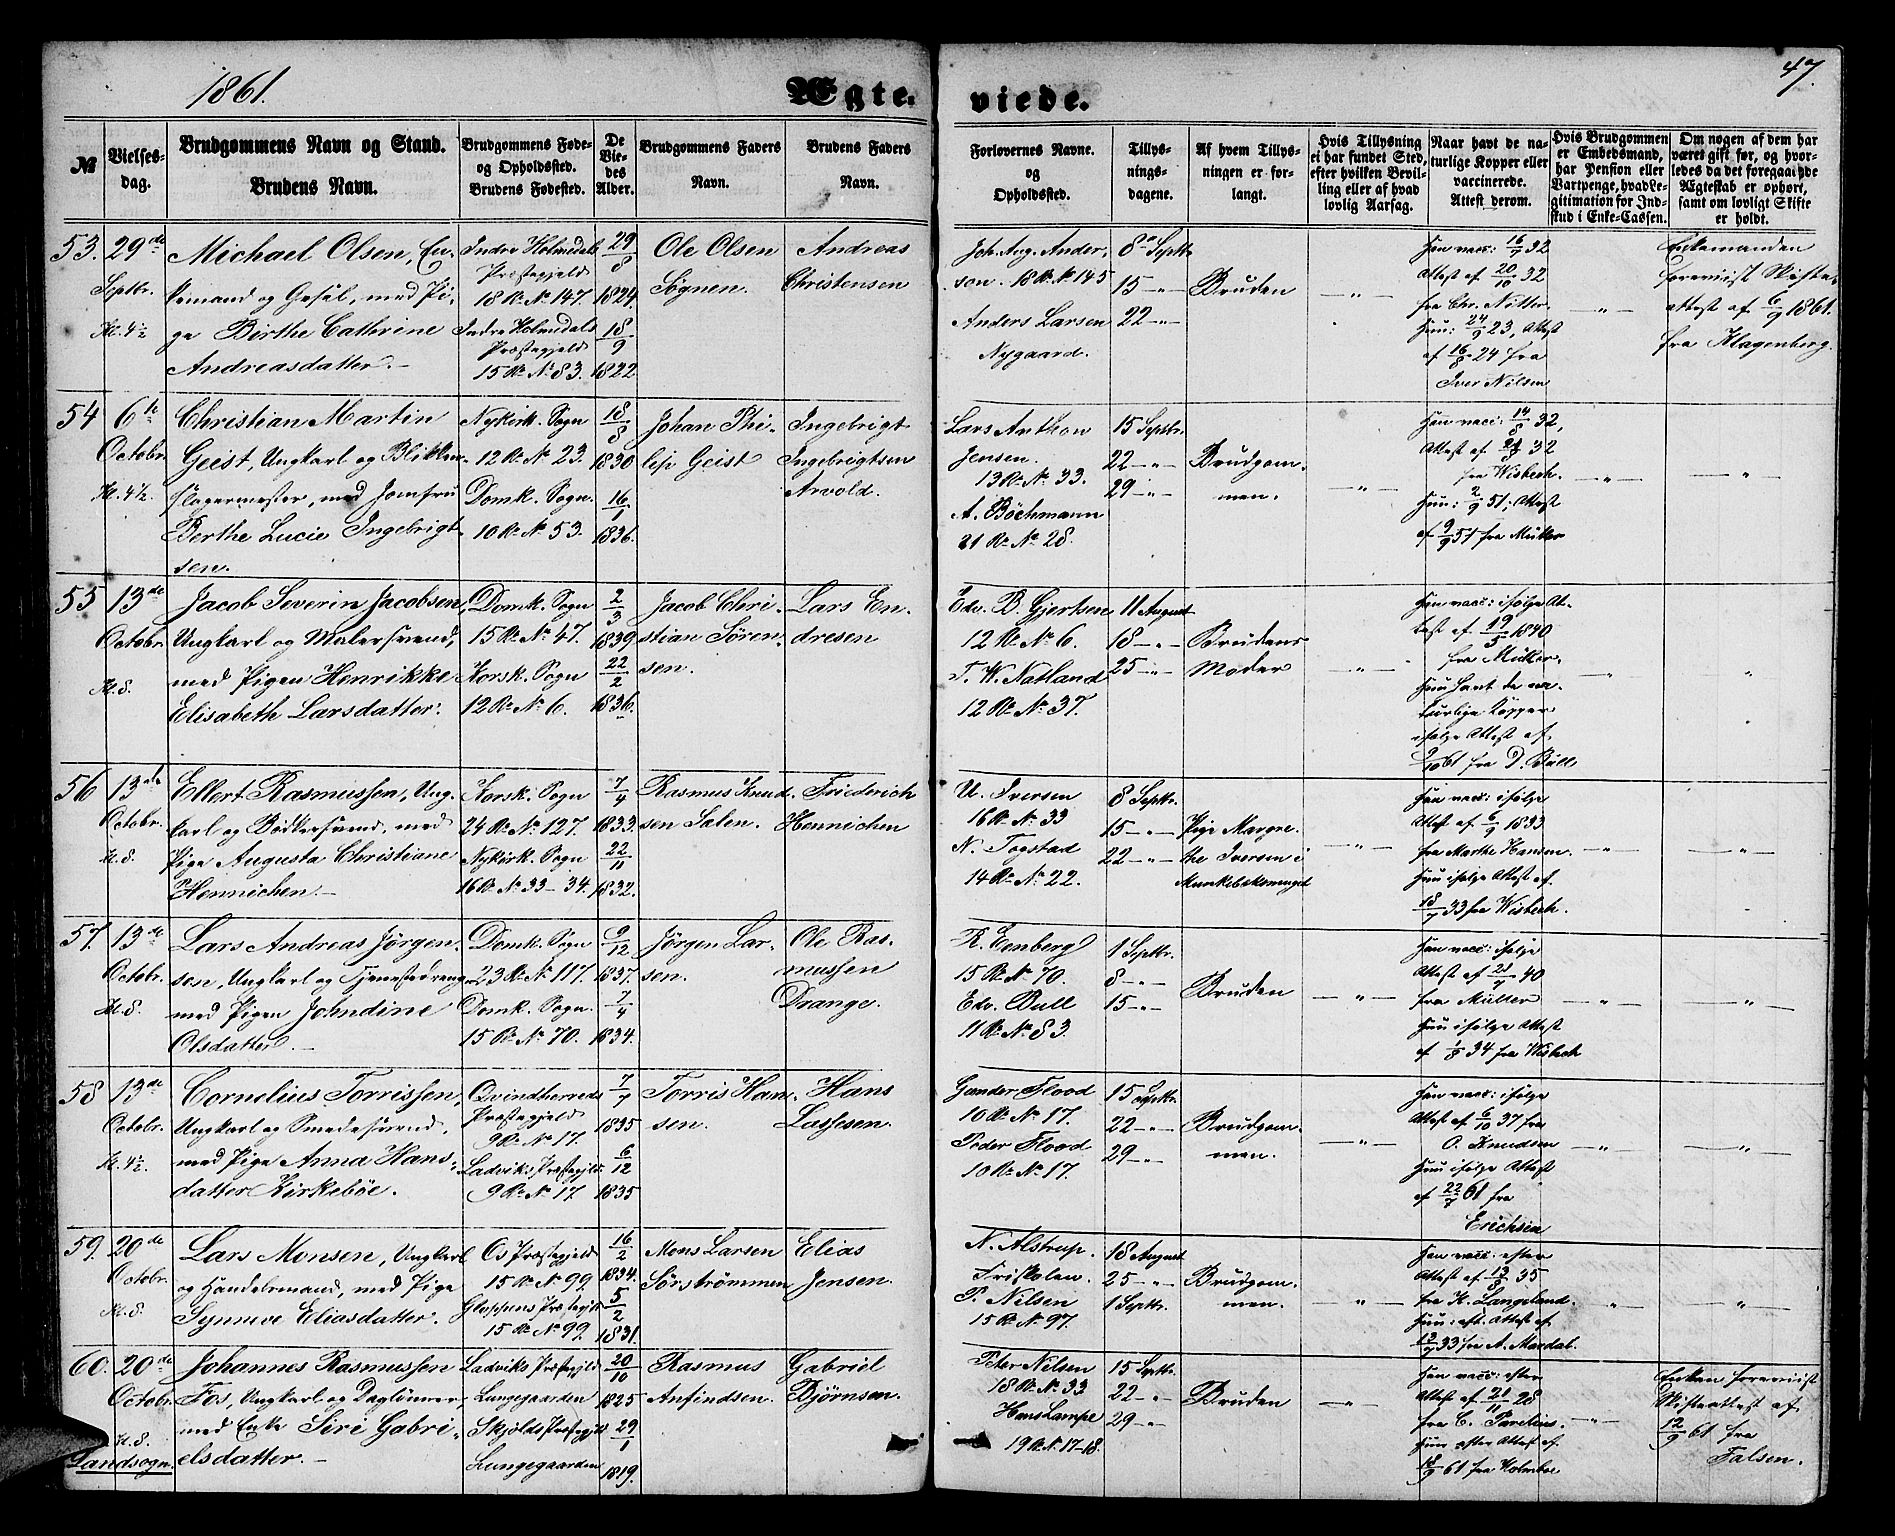 1861.
Ægte-
viede.
47.
№
Vielses-
dag.
Brudgommens Navn og Stand.
Brudens Navn.
Brudgommens Føde-
og Opholdssted.
Brudens Fødested.
De
Vie-
des
Alder.
Brudgommens Faders
Navn.
Brudens Faders
Navn.
Forlovernes Navne.
og
Opholdssted.
Tillys-
nings-
dagene.
Af hvem Tillys-
ningen er for-
langt.
Hvis Tillysning
ei har fundet Sted,
efter hvilken Bevil-
ling eller af hvad
lovlig Aarsag.
Naar havt de na-
turlige Kopper eller
vaccinerede.
Attest derom.
Hvis Brudgommen
er Embedsmand,
har Pension eller
Vartpenge, hvad Le-
gitimation for Ind-
skud i Enke-Cassen.
Om nogen af dem har
været gift før, og hvor-
ledes da det foregaaende
Ægteskab er ophørt,
samt om lovligt Skifte
er holdt.
53.
29de
Septbr.
Kl. 4½
Michael Olsen, En-
kemand og Gesel, med Pi-
ge Birthe Cathrine
Andreasdatter. —
Indre Holmedals
Præstegjeld
18 R. № 147.
Indre Holmedals
Præstegjeld
15 R. № 83.
29/8
1824.
18/9
1822.
Ole Olsen
Søgnen.
Andreas
Christensen
Joh. Aug. Ander-
sen. 18 R. № 145
Anders Larsen
Nygaard.
8de Septbr.
15 — " —
22 — " —
Bruden
— " —
Han vacc: 16/7 32
Attest af 20/10 32
fra Chr. Nitter.
Hun: 24/9 23, Attest
af 16/8 24 fra
Iver Nilsen
— " —
Enkemanden
foreviist Skifte-
attest af 6/9 1861.
fra Klagenberg.
54
6te
Octobr.
Kl. 4½.
Christian Martin
Geist, Ungkarl og Blikken-
slagermester, med Jomfru
Berthe Lucie Ingebrigt-
sen.
Nykirk. Sogn
12 R. № 23.
Domk. Sogn.
10 R. № 53.
18/8
1830
16/1
1836.
Johan Phi-
lip Geist
Ingebrigt
Ingebrigtsen
Arvold.
Lars Anthon
Jensen.
13 R. № 33.
A. Böchmann
21 R. № 28.
15 Septbr.
22 — " —
29 — " —
Brudgom-
men.
— " —
Han vacc: 14/8 32,
Attest af 23/8 32
fra Wisbech.
Hun: 2/9 51; Attest
af 9/9 51 fra Müller
— " —
— " —
55
13de
Octobr.
Kl. 8.
Jacob Severin Jacobsen,
Ungkarl og Malersvend,
med Pigen Henrikke
Elisabeth Larsdatter.
Domk. Sogn
15 R. № 47.
Korsk. Sogn
12 R. № 6.
2/3
1839
22/2
1836.
Jacob Chri-
stian Sören-
sen.
Lars En-
dresen
Edv. B. Gjertsen
12 R. № 6.
T. W. Natland
12 R. № 37.
11 August
18 — " —
25 — " —
Brudens
Moder
— " —
Han vacc: ifølge At-
test af 19/5 1840
fra Müller.
Hun havt de na-
turlige Kopper
ifølge Attest af
2/10 61 fra D. Bull
— " —
"
56
13de
Octobr.
Kl. 8.
Ellert Rasmussen, Ung-
karl og Bødkersvend, med
Pige Augusta Christiane
Hennichen. —
Korsk. Sogn
24 R. № 127.
Nykirk. Sogn
16 R. № 33 — 34.
7/4
1833.
22/11
1832.
Rasmus Knud-
sen Salen.
Friederich
Hennichen
U. Iversen
16 R. № 33
N. Togstad
14 R. № 22.
8 Septbr.
15 — " —
22 — " —
Pige Margre-
the Iversen i
Munkebeksmuget
— " —
Han vacc: ifølge
Attest af 6/9 1833
fra Marthe Hansen.
Hun ifølge Attest af
18/7 33 fra Wisbech.
— " —
— " —
57.
13de
Octobr.
Kl. 8.
Lars Andreas Jørgen-
sen, Ungkarl og Tjenestedreng
med Pigen Johndine
Olsdatter. —
Domk. Sogn
23 R. № 117.
Domk. Sogn.
15 R. № 70.
9/12
1837.
7/4
1834.
Jørgen Lar-
sen.
Ole Ras-
mussen
Drange.
R. Eenberg
15 R. № 70.
Edv. Bull
11 R. № 83.
1 Septbr.
8 — " —
15 — " —
Bruden
— " —
Han vacc: ifølge
Attest af 21/7 40
fra Müller
Hun ifølge Attest
af 1/8 34 fra Wisbech
— " —
— " —
58
13de
Octobr.
Kl. 4½.
Cornelius Torrissen,
Ungkarl og Smedesvend,
med Pige Anna Hans-
datter Kirkebøe.
Qvindherreds
Præstegjeld
9 R. № 17.
Ladviks Præstegjld
9 R. № 17
7/7
1835
6/12
1835
Torris Han-
sen.
Hans
Lassesen.
Gunder Flood
10 R. № 17.
Peder Flood
10 R. № 17.
15 Septbr.
22 — " —
29 — " —
Brudgom-
men.
— " —
Han vacc: ifølge
Attest af 6/10 37 fra
O. Knudsen
Hun ifølge Attest
af 22/7 61 fra
Erichsen
— " —
— " —
59.
20de
Octobr.
Kl. 8.
Lars Monsen, Ungkarl
og Handelsmand, med Pige
Synneve Eliasdatter.
Os Præstegjeld
15 R. № 99.
Gloppens Præstegjld
15 R. № 99.
16/2
1834.
5/2
1831.
Mons Larsen
Sörströmmen
Elias
Jensen.
N. Alstrup.
Friskolen.
P. Nilsen
15 R. № 97.
18 August
25 — " —
1 Septbr.
Brudgom-
men.
— " —
Han vacc: efter
Attest af 13/8 35
fra K. Langeland.
Hun: eft. Attest af
12/9 33 fra A. Mardal.
" —
— " —
60.
20de
Octobr.
Kl. 8.
Landsogn.
Johannes Rasmussen
Fos, Ungkarl og Dagløner
med Enke Siri Gabri-
elsdatter. —
Ladviks Præstegjeld
Lungegaarden
Skjolds Præstegjld
Lungegaarden
20/10
1825
29/1
1819.
Rasmus
Anfindsen.
Gabriel
Bjørnsen.
Peter Nilsen
18 R. № 33
Hans Lampe
19 R. № 17-18.
15 Septbr.
22 — " —
29 — " —
Bruden
— " —
Han vacc: efter
Attest af 21/11 28
fra C. Parelius.
Hun efter Attest af
18/9 61 fra Holmboe
— " —
Enken foreviist
Skifteattest af
12/9 61 fra
Falsen.